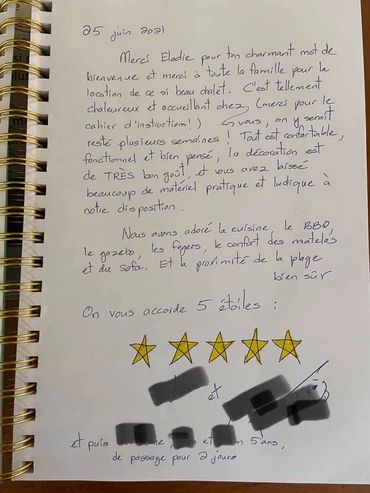 25 juin 2021
Merci Elodie pour ton charmant mot de
bienvenue et merci à toute la famille pour la
location de ce si beau chalet. C'est tellement
chaleureux et accueillant chez, (merci pour le
cahier d'instructions!) vous, on y serait
resté plusieurs semaines! Tout est confortable,
fonctionnel et bien pensé, la décoration est
de TRÈS bon goût, et vous avez laissé
beaucoup de matériel pratique et ludique à
notre disposition.
Nous avons adoré la cuisine, le BBQ,
le gazebo, les foyers, le confort des matelas
et du sofa. Et la proximité de la plage
bien sûr
On vous accorde 5 étoiles :
et
et puis et 5 ans,
de passage pour 2 jours